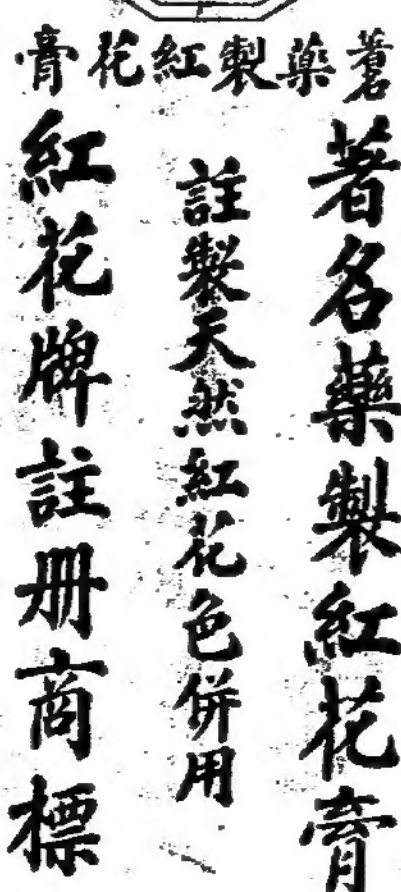 著名藥製紅花膏
著名藥製紅花膏
註製天然紅花色併用
紅花牌註册商標